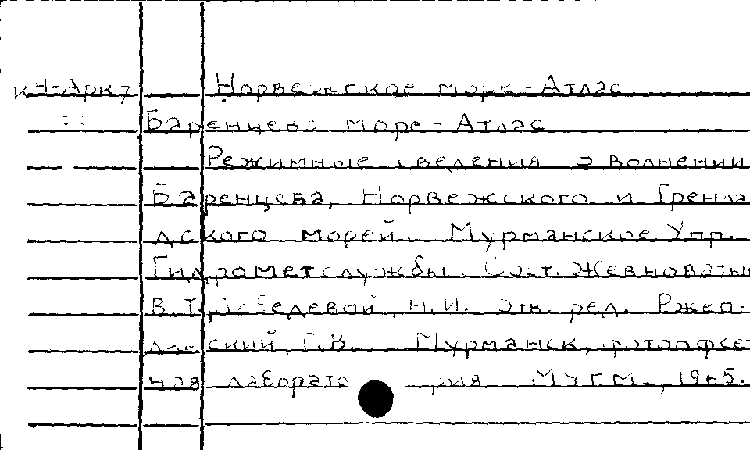 кН-Арк7 Норвежское море-Атлас
Баренцево море-Атлас
Режимные сведения о волнении
Баренцева, Норвежского и Гренла
дского морей. Мурманское Упр.
Гидрометслужбы. Сост. Жевноватый
В.Т., Лебедевой, Н.И. Отв. ред. Ржеп-
линский, Г.В. Мурманск, фотоофсе
ная лаборато рия МУГМ., 1965.